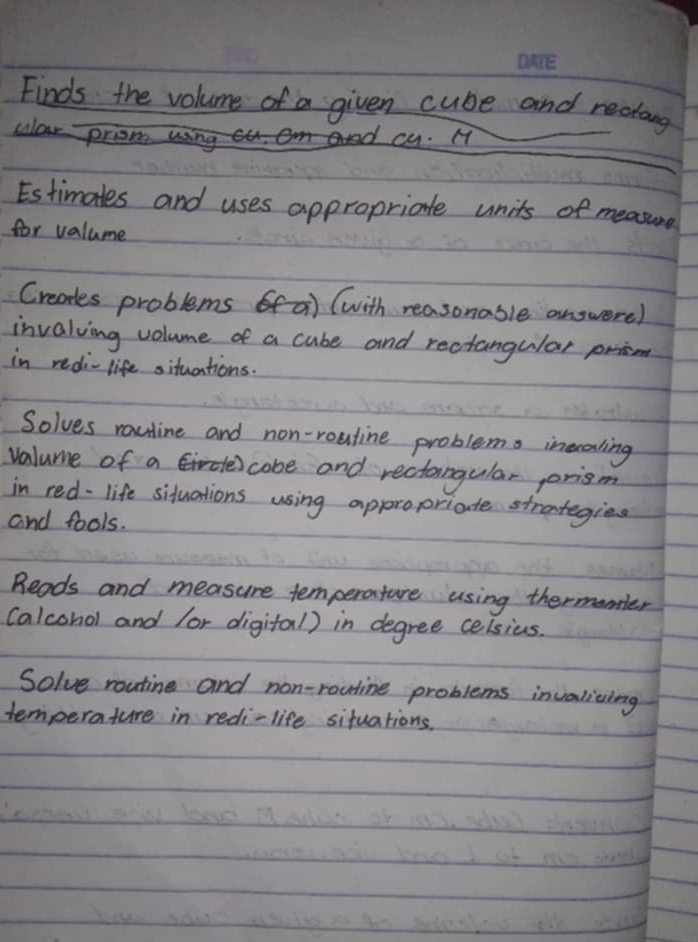 DATE
Finds the volume of a given cube and rectang
ular prism using cu. cm and cu. M
Estimates and uses appropriate units of measure
for valume
Creates problems (of a) (with reasonable answere)
invalving volume of a cube and rectangular prism
in redi-life situations.
Solves routline and non-routine problems
valume of a (circle) cobe and rectangular prism
in red-life situations using appropriate strategies
and fools.
Reads and measure temperature using thermamter
(alcohol and /or digital) in degree celsius.
Solve routine and non-routine problems invaliving
temperature in redi-life situations.